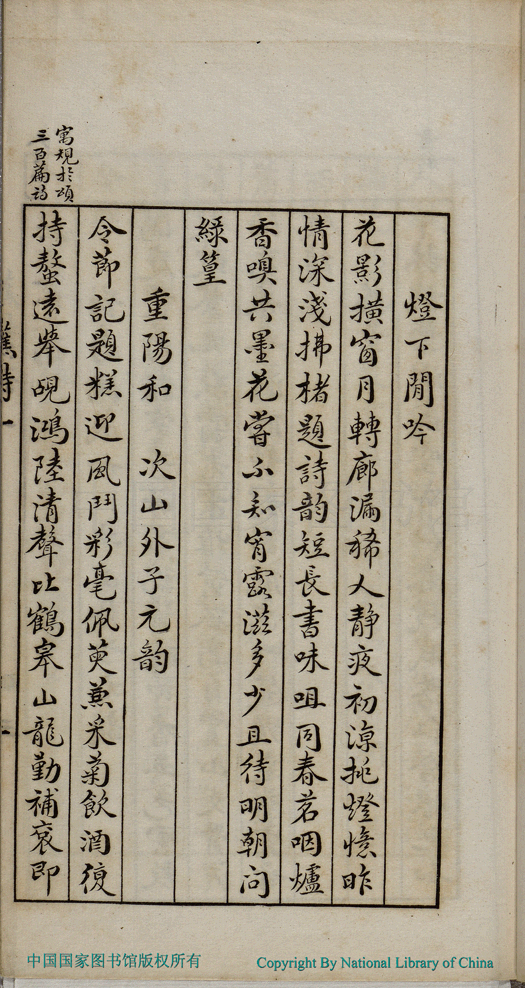 燈下閒吟
花影撗窗月轉廊漏稀人靜夜初涼挑燈憶昨
情深淺拂楮題詩韵短長書味咀同春茗咽爐
香嗅共墨花嘗不知宵露滋多少且待明朝问
綠篁
重陽和 次山外子元韵
令節記題糕迎風鬥彩毫佩萸兼采菊飲酒復
寓規於頌
三百篇詩
持螯遠舉覘鴻陸清聲比鶴皋山龍勤補袞即
中国国家图书馆版权所有
Copyright By National Library of China